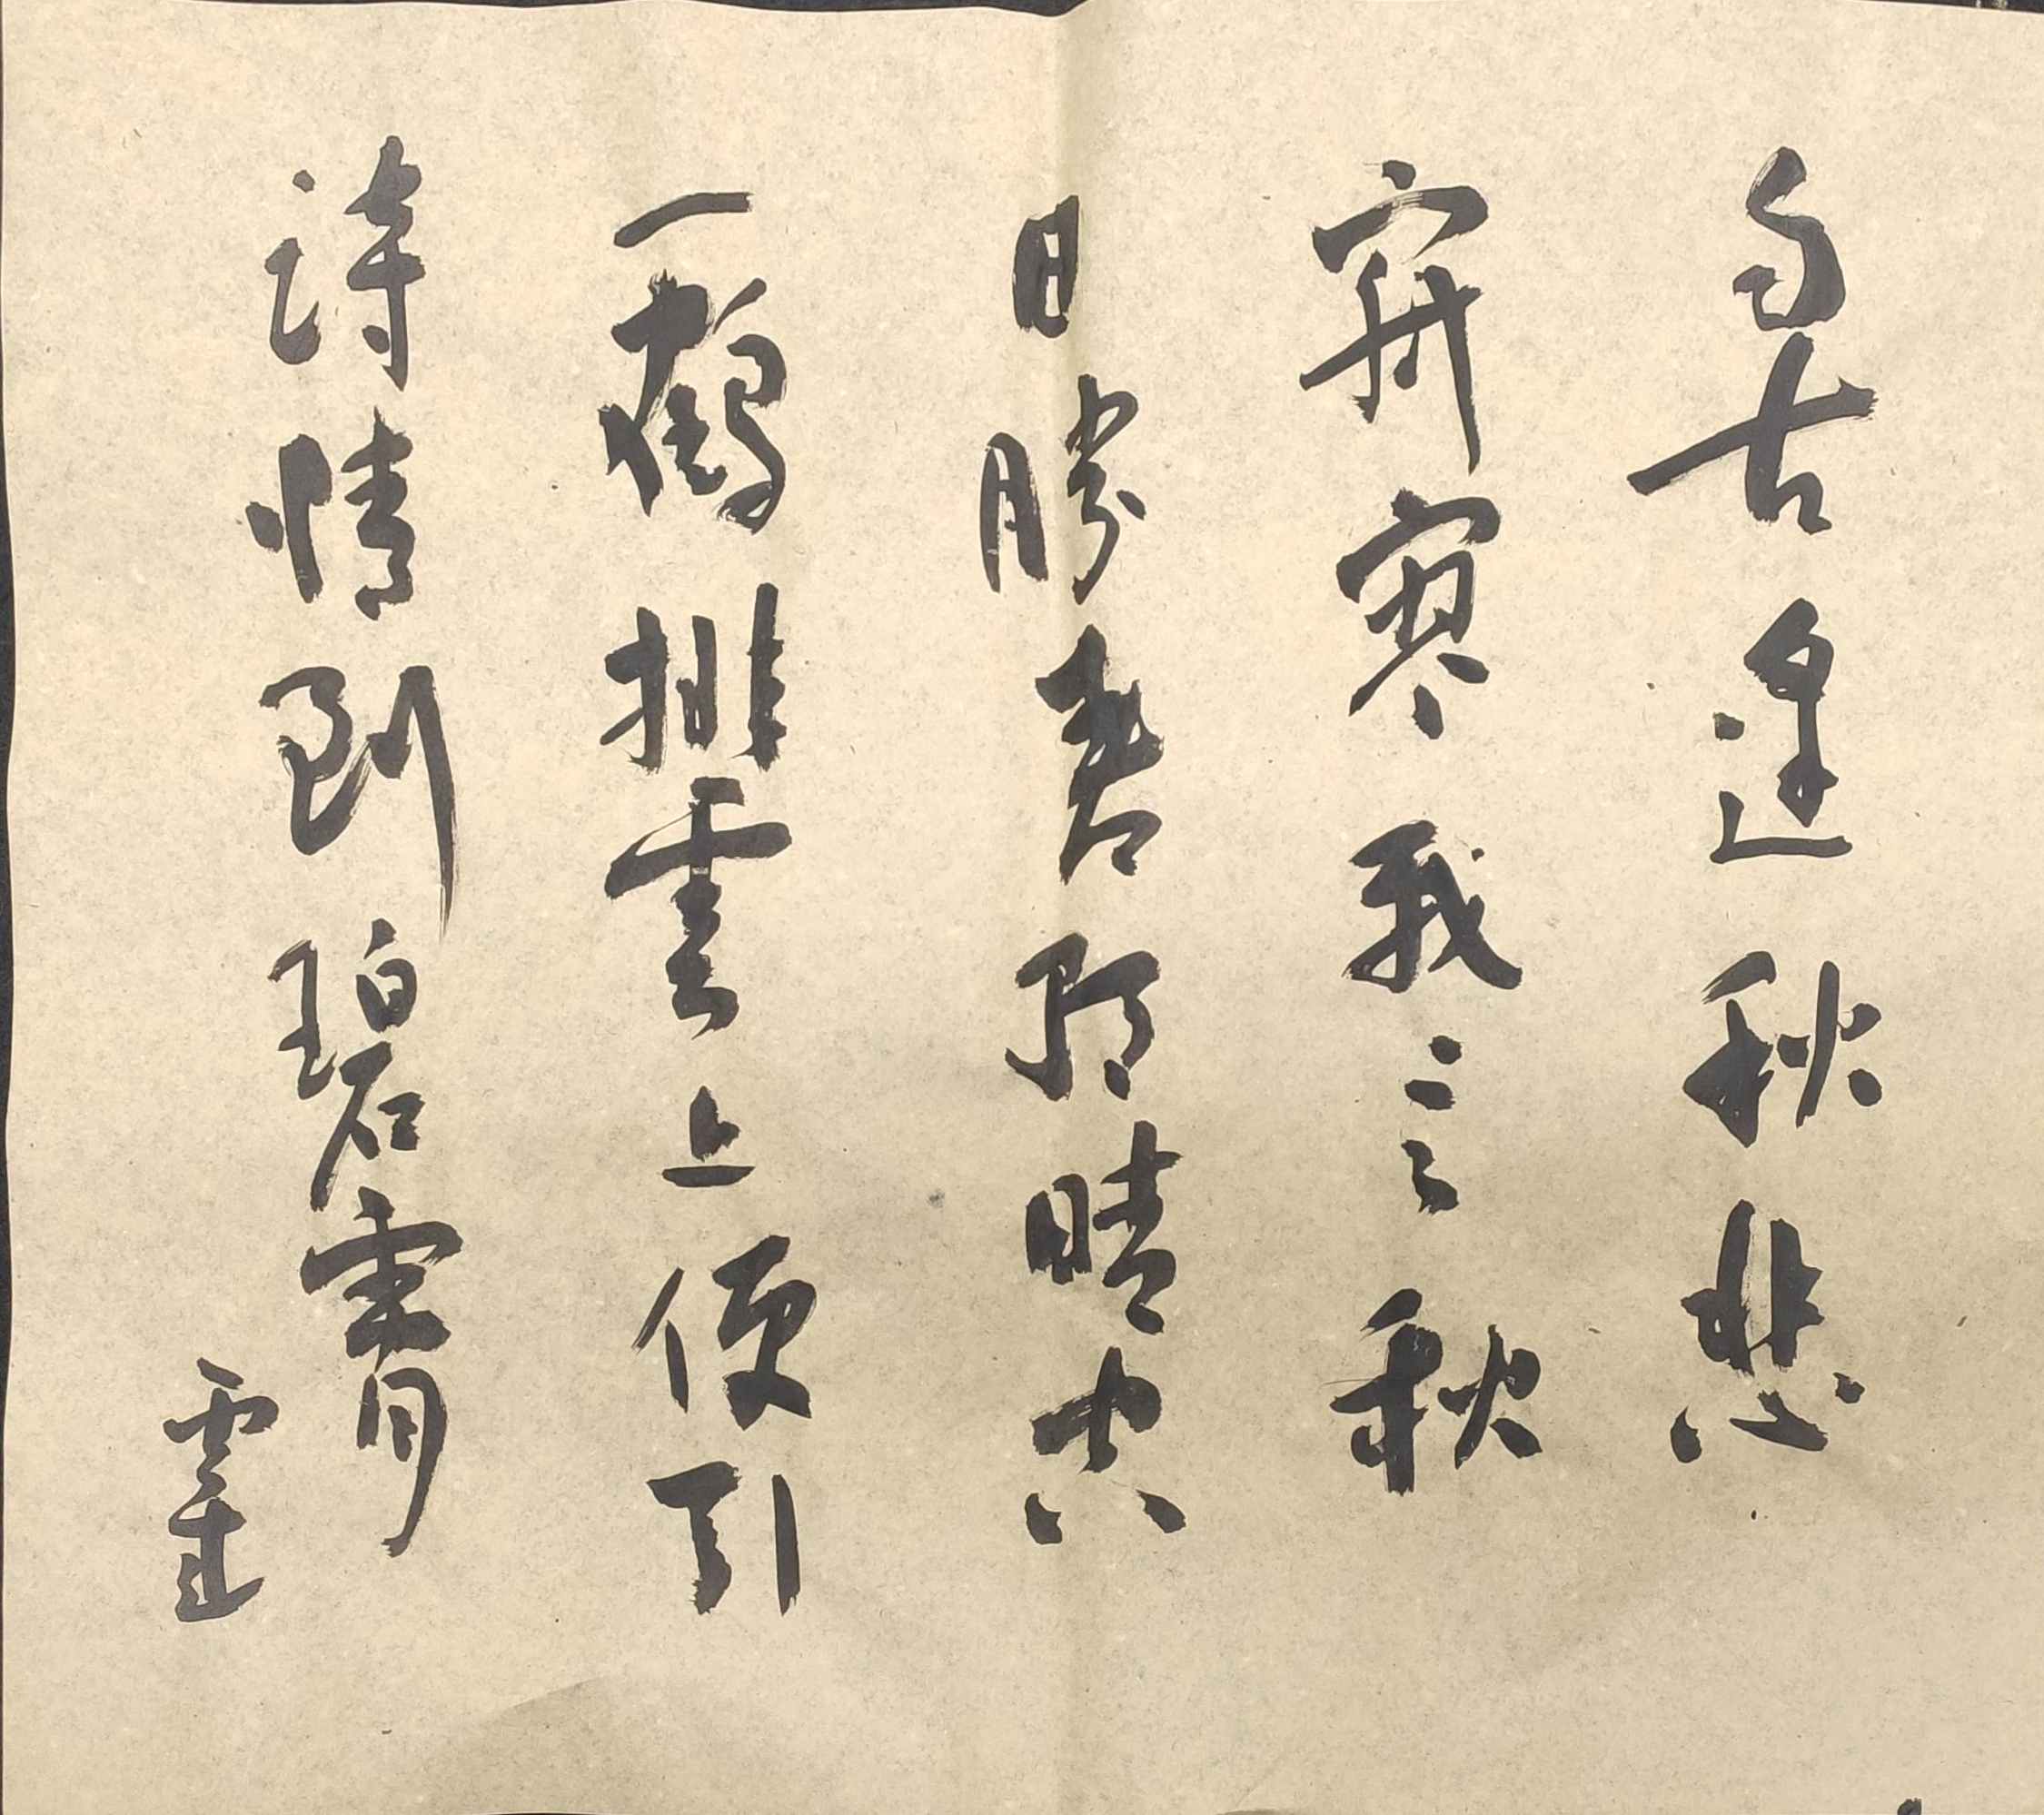 自古逢秋悲
寂寥我言秋
日勝春朝晴空
一鶴排雲上便引
詩情到碧霄